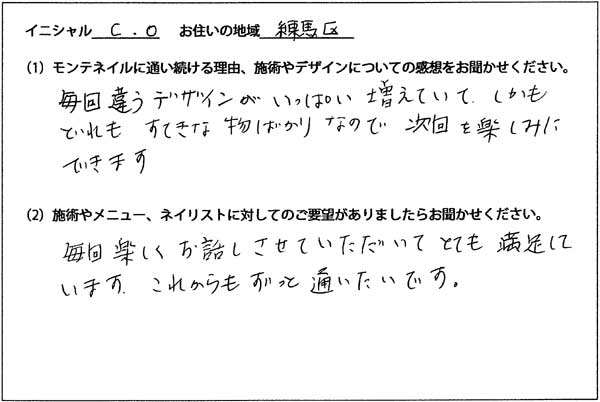 イニシャル C.O お住いの地域 練馬区
(1) モンテネイルに通い続ける理由、施術やデザインについての感想をお聞かせください。
毎回違うデザインがいっぱい増えていて、しかも
どれもすてきな物ばかりなので次回を楽しみに
できます
(2) 施術やメニュー、ネイリストに対してのご要望がありましたらお聞かせください。
毎回楽しくお話しさせていただいてとても満足して
います、これからもずっと通いたいです。